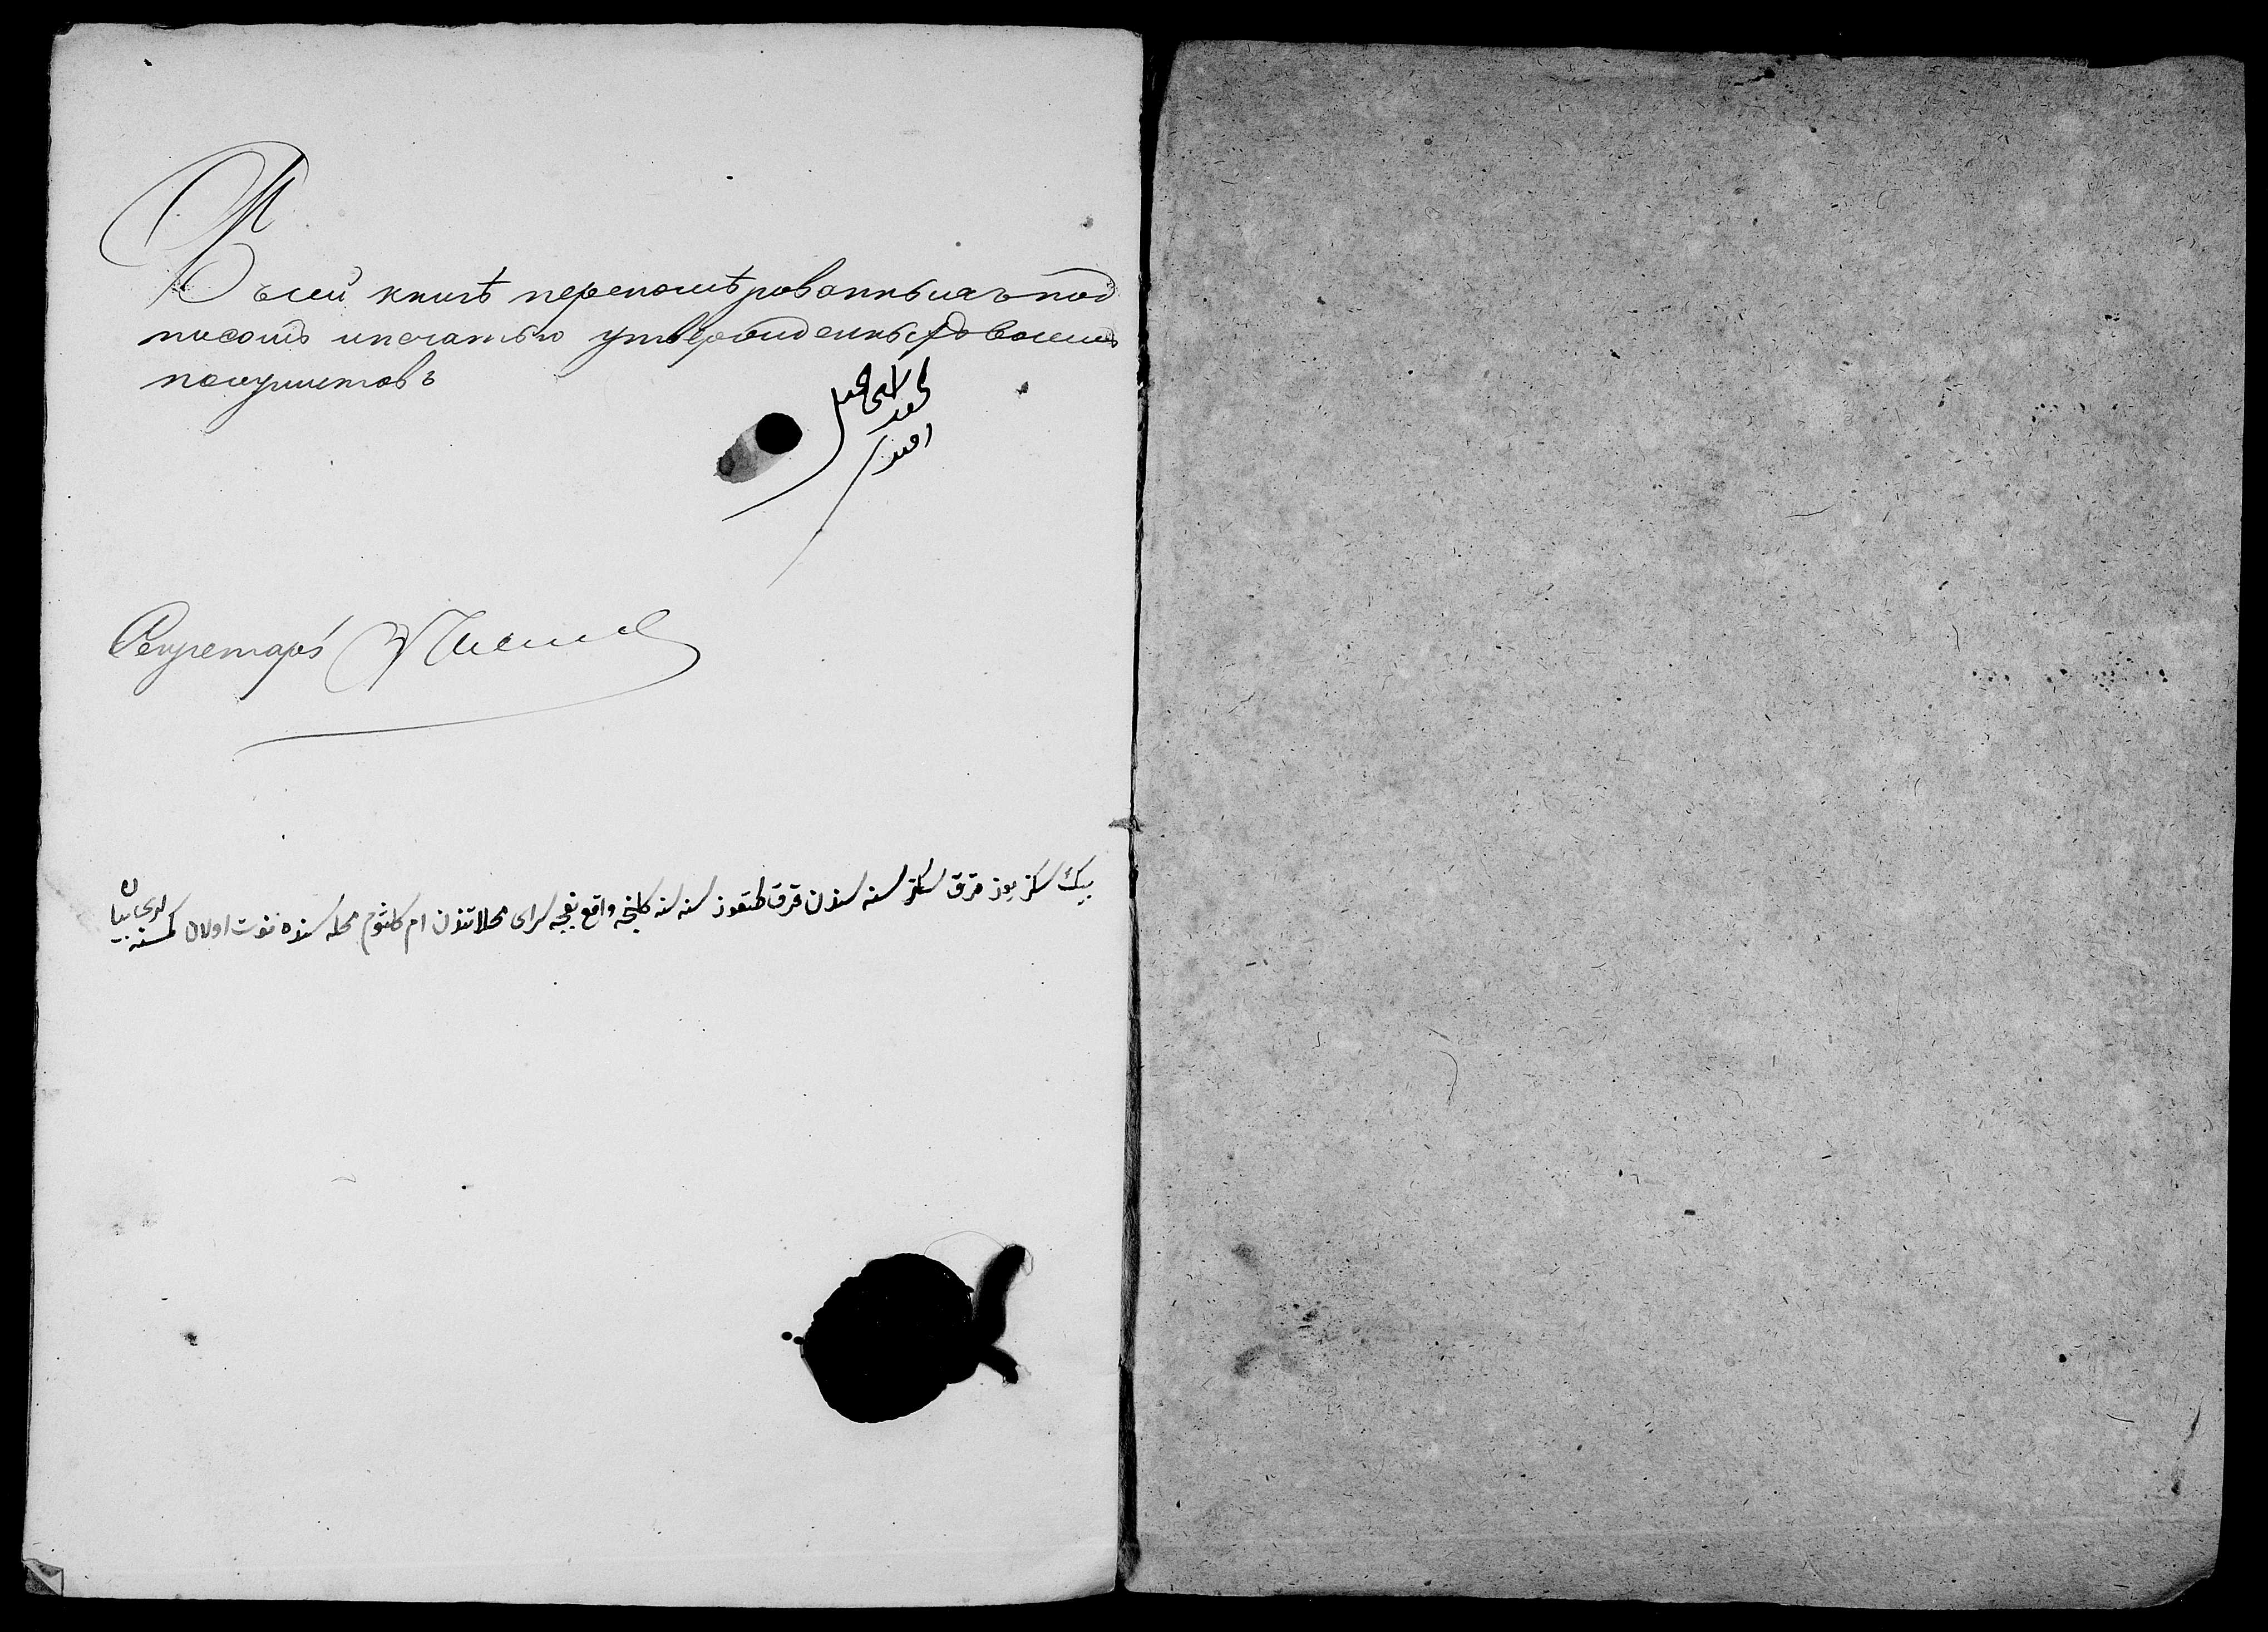 Въ сей книгѣ переномѣрованныхъ под
писомъ и печатью утвержденныхъ восемь
полулистовъ
افندی
Секретарь
بیك سكز یوز قرق سكز سنه سندن قرق طقوز سنه سنه كلنجه واقع بغچه سرای محلاتندن ام كلثوم محله سنده فوت اولان كمسنه
لری بیان